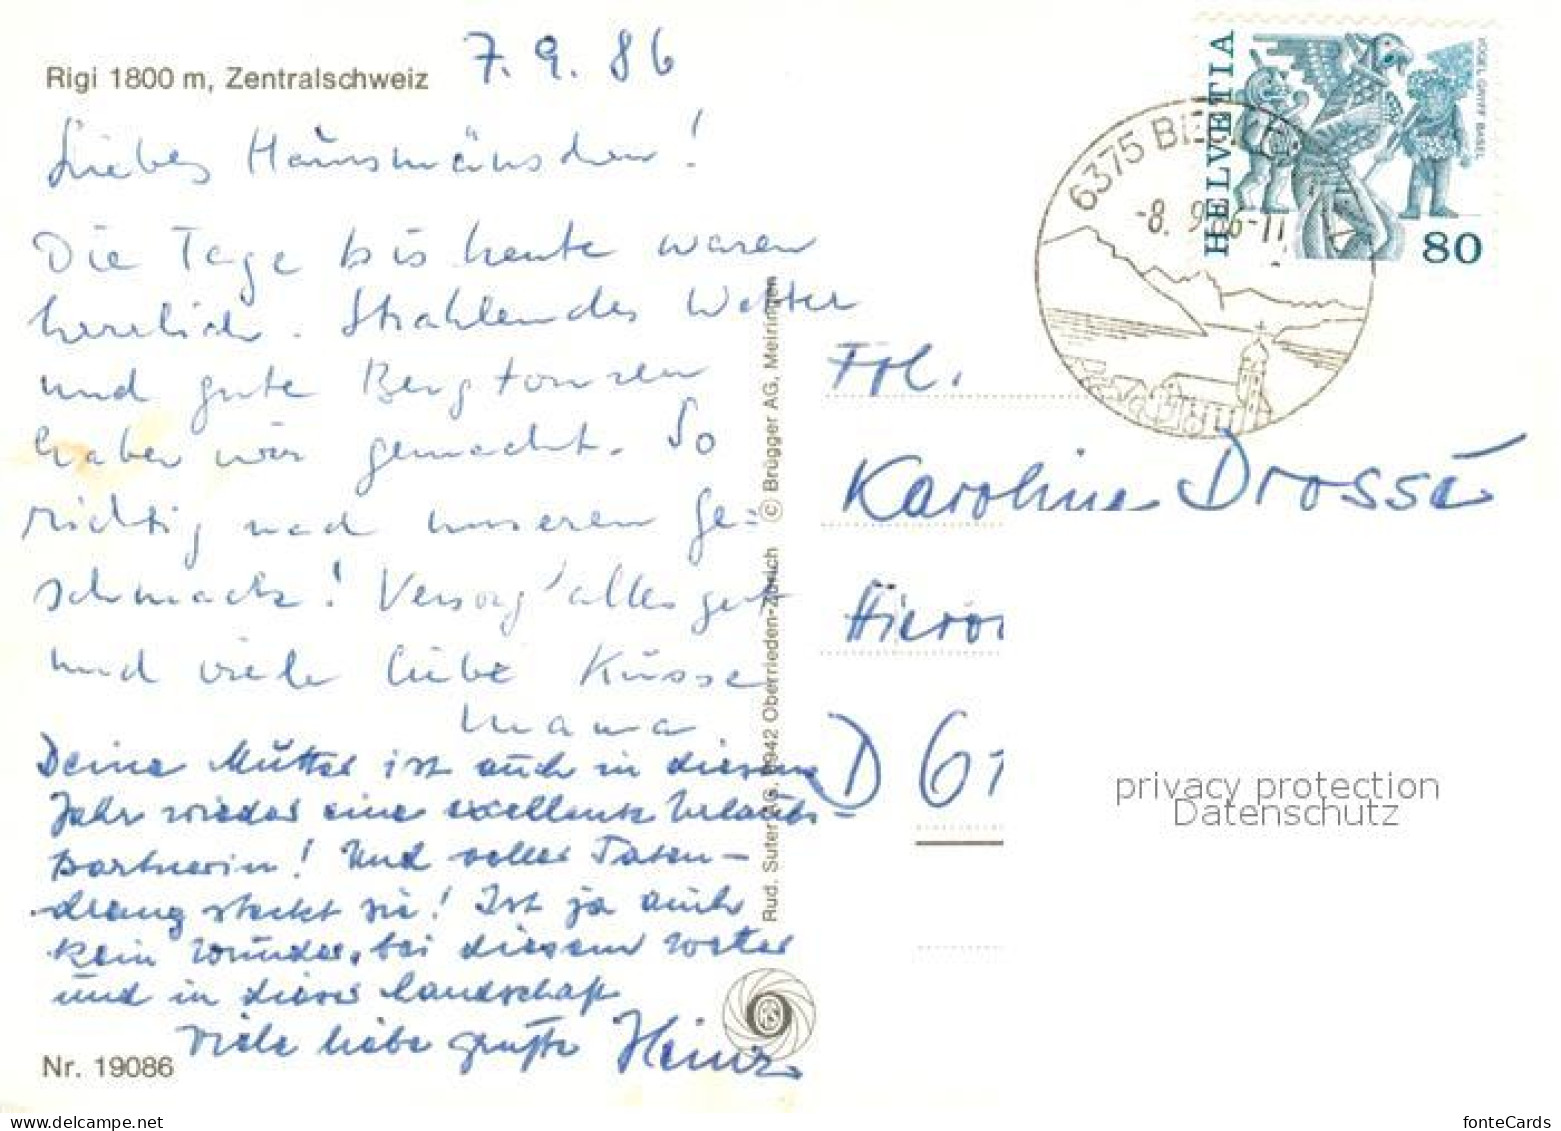 7. 9. 86
Rigi 1800 m, Zentralschweiz
Liebes Hausmäuschen!
Die Tage bis heute waren
herrlich. Strahlendes Wetter
und gute Bergtouren
haben wir gemacht. So
richtig nach unserem Ge=
schmack! Versorg' alles gut
und viele liebe Küsse
Mama
Deine Mutter ist auch in diesem
Jahr wieder eine exzellente Urlaubs-
partnerin! Und voller Taten-
drang steckt sie! Ist ja auch
kein Wunder, bei diesem Wetter
und in dieser Landschaft
Viele liebe Grüße Heinz
Nr. 19086
Rud. Suter AG, 8942 Oberrieden-Zürich © Brügger AG, Meiringen
RS
HELVETIA
VOGEL GRYFF BASEL
80
6375 BE
-8. 9. 86-11
Frl.
Karoline Drosse
Hieron
D 61
privacy protection
Datenschutz
delcampe.net
fonteCards